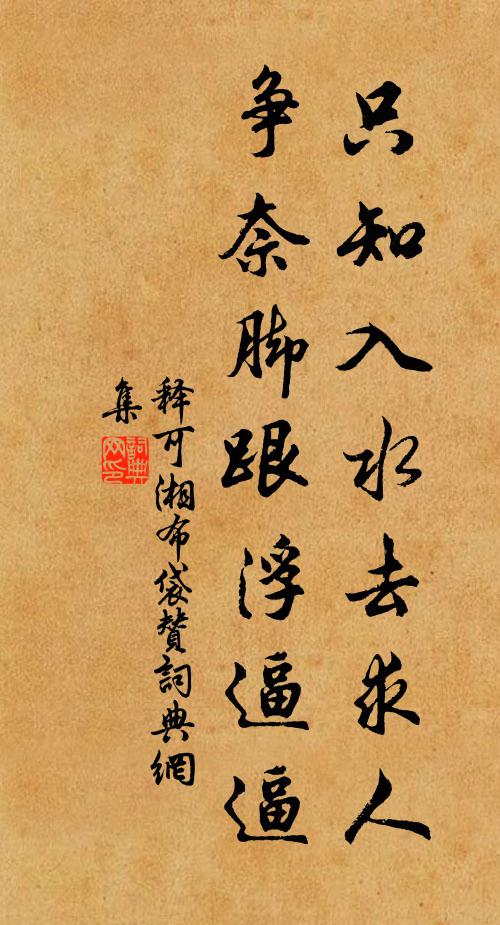 只知入水去求人
争奈脚跟浮逼逼
释可湘布袋赞詞典網
集
詞典网印